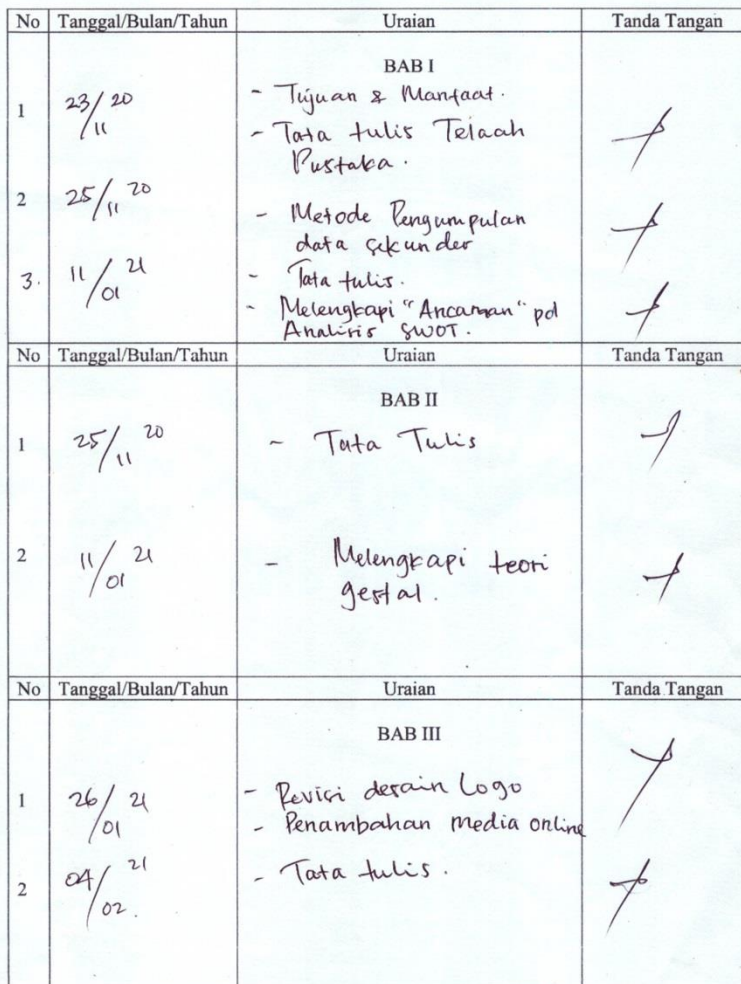 No Tanggal/Bulan/Tahun Uraian Tanda Tangan
BAB I
1 23/11 20 - Tujuan & Manfaat.
- Tata tulis Telaah
Pustaka.
2 25/11 20
- Metode Pengumpulan
data sekunder
3. 11/01 21 - Tata tulis.
- Melengkapi "Ancaman" pd
Analisis SWOT.
No Tanggal/Bulan/Tahun Uraian Tanda Tangan
BAB II
1 25/11 20 - Tata Tulis
2 11/01 21 - Melengkapi teori
gestal.
No Tanggal/Bulan/Tahun Uraian Tanda Tangan
BAB III
1 26/01 21 - Revisi desain Logo
- Penambahan media online
2 04/02. 21 - Tata tulis.